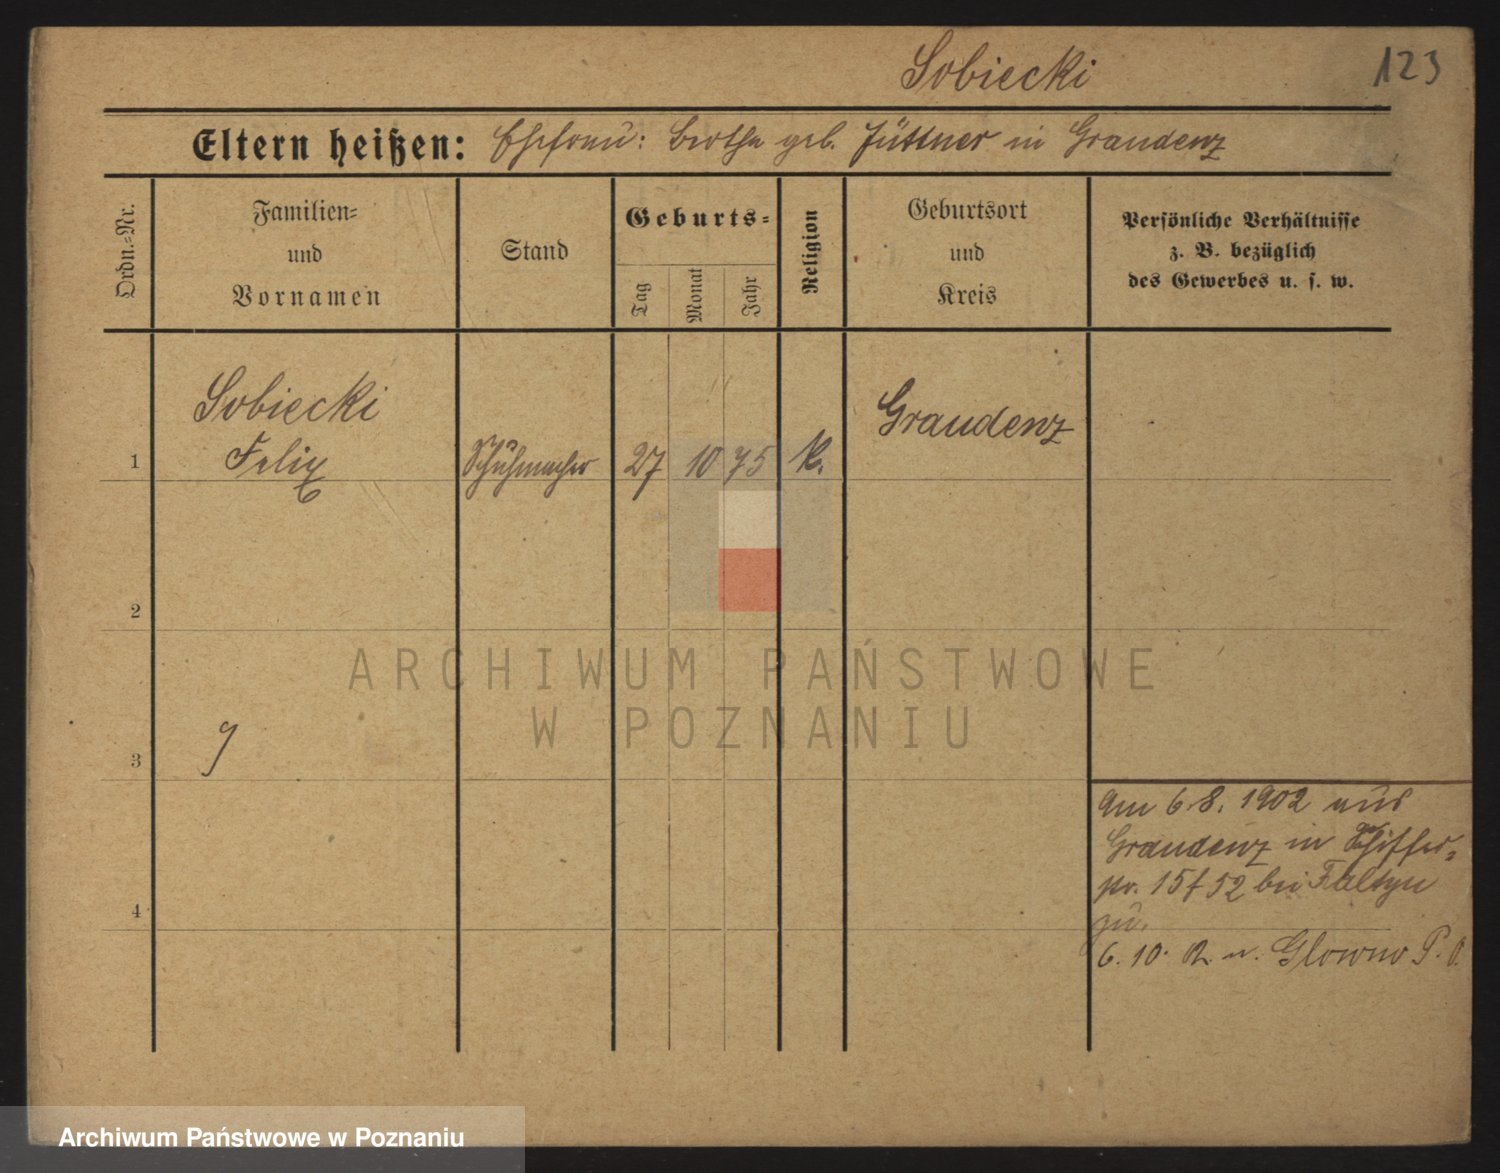 Sobiecki 123
Eltern heißen: Ehefrau: Bertha geb. Jüttner in Graudenz
Ordn.-Nr.
Familien-
und
Vornamen
Stand
Geburts-
Tag
Monat
Jahr
Religion
Geburtsort
und
Kreis
Persönliche Verhältnisse
z. B. bezüglich
des Gewerbes u. s. w.
Sobiecki
Graudenz
1 Felix Schuhmacher 27 10 75 K.
2
ARCHIWUM PAŃSTWOWE
W POZNANIU
3
4
Am 6.8. 1902 aus
Graudenz in
15/52 bei
zu.
6. 10. n. Glowno P. O.
Archiwum Państwowe w Poznaniu